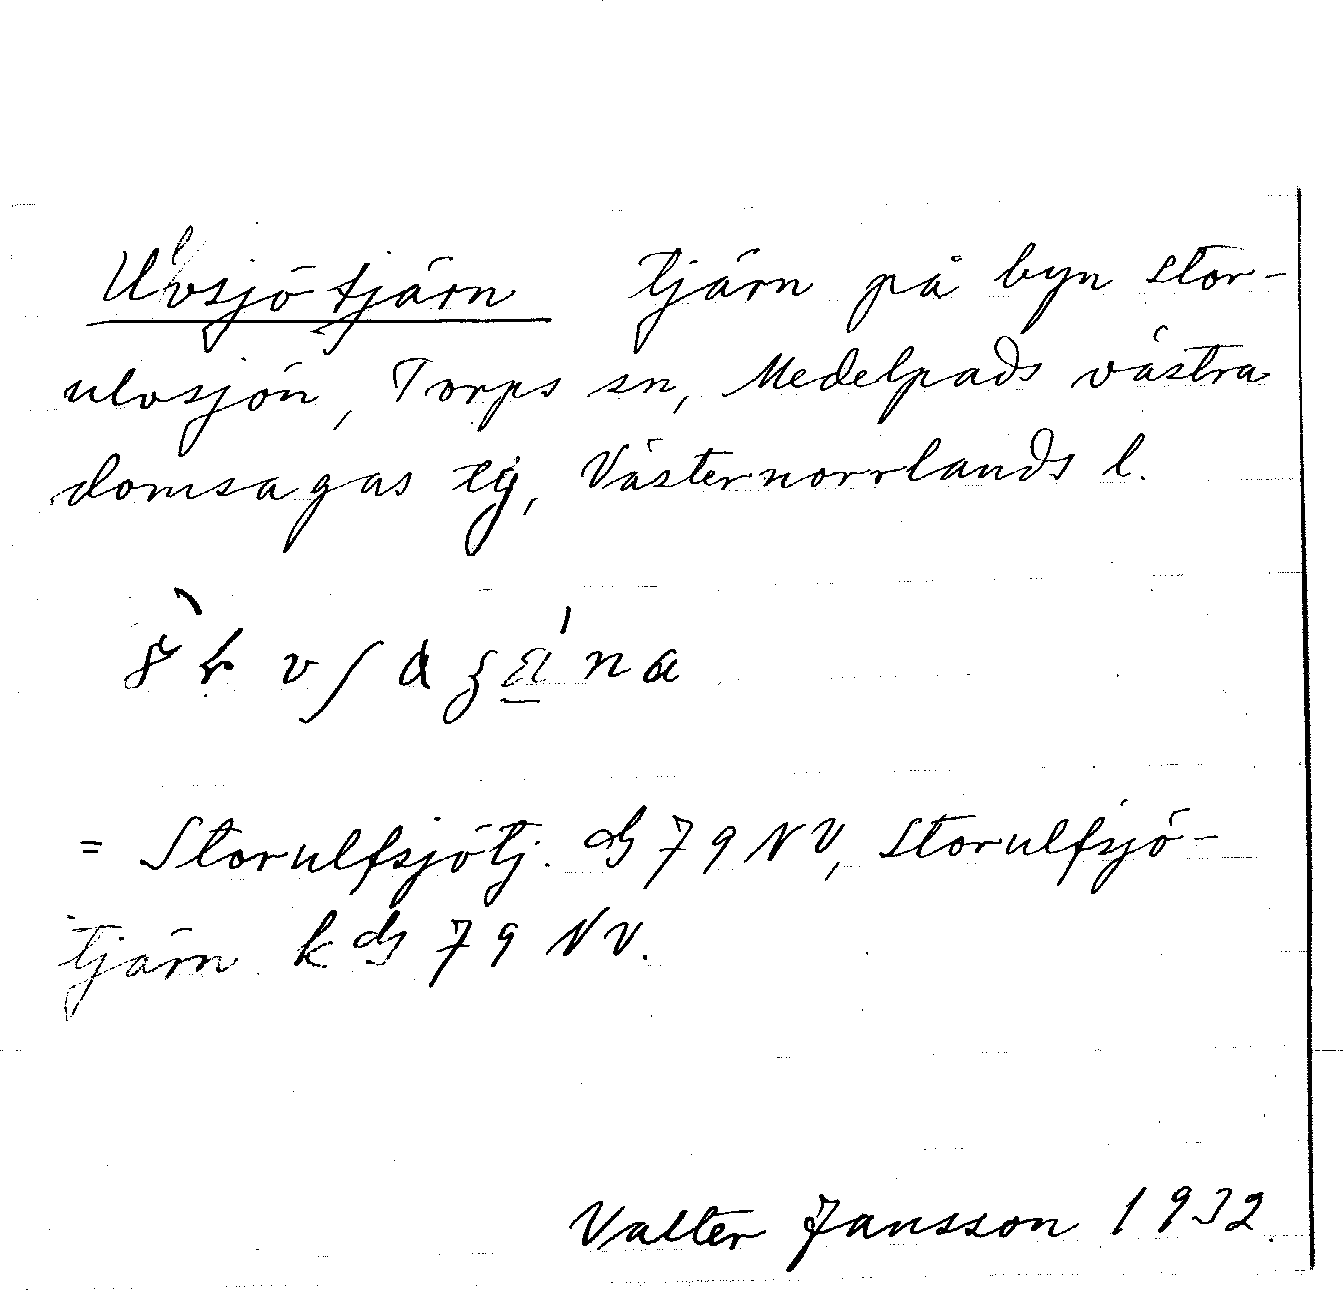 Ulvsjötjärn tjärn på byn Stor-
ulvsjön, Torps sn, Medelpads västra
domsagas tg, Västernorrlands l.
= Storulfsjötj. ds 79 NV, Storulfsjö-
tjärn k ds 79 NV.
Valter Jansson 1932.